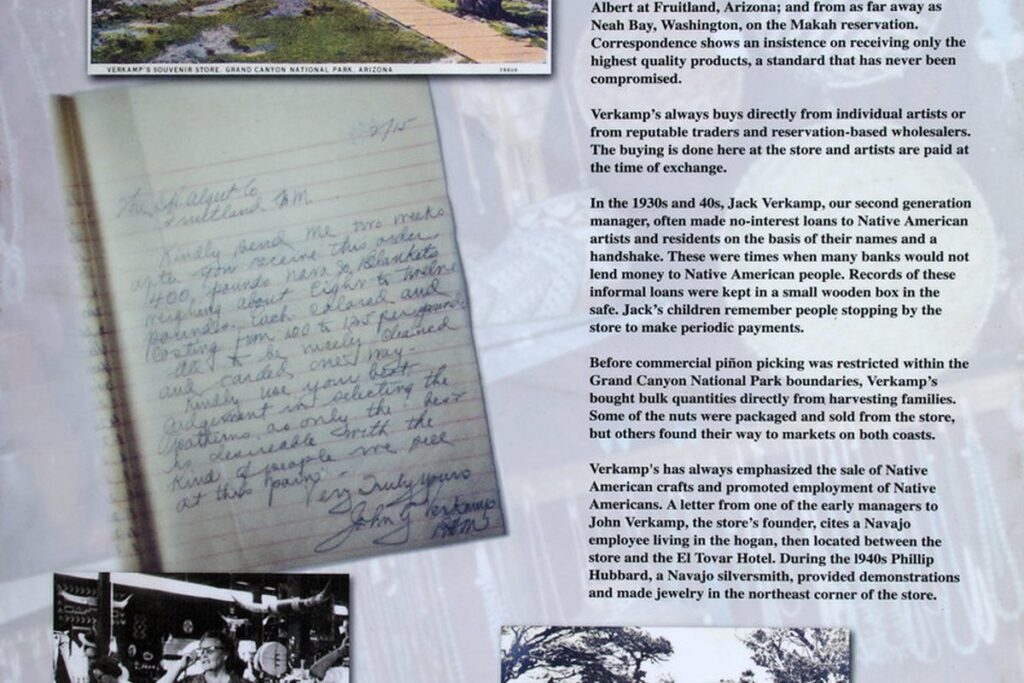 VERKAMP'S SOUVENIR STORE, GRAND CANYON NATIONAL PARK, ARIZONA
Kindly send me two weeks
after you receive this order
400, pounds Navajo Blankets
weighing about Eight to Twelve
pounds. Each colored and
Costing from 100 to 125 per pound
All to be nicely cleaned
and carded one way-
Kindly use your best
judgement in selecting the
patterns as only the best
is desireable with the
kind of people we sell
at this point-
Very Truly yours
John G Verkamp
Albert at Fruitland, Arizona; and from as far away as
Neah Bay, Washington, on the Makah reservation.
Correspondence shows an insistence on receiving only the
highest quality products, a standard that has never been
compromised.
Verkamp's always buys directly from individual artists or
from reputable traders and reservation-based wholesalers.
The buying is done here at the store and artists are paid at
the time of exchange.
In the 1930s and 40s, Jack Verkamp, our second generation
manager, often made no-interest loans to Native American
artists and residents on the basis of their names and a
handshake. These were times when many banks would not
lend money to Native American people. Records of these
informal loans were kept in a small wooden box in the
safe. Jack's children remember people stopping by the
store to make periodic payments.
Before commercial piñon picking was restricted within the
Grand Canyon National Park boundaries, Verkamp's
bought bulk quantities directly from harvesting families.
Some of the nuts were packaged and sold from the store,
but others found their way to markets on both coasts.
Verkamp's has always emphasized the sale of Native
American crafts and promoted employment of Native
Americans. A letter from one of the early managers to
John Verkamp, the store's founder, cites a Navajo
employee living in the hogan, then located between the
store and the El Tovar Hotel. During the 1940s Phillip
Hubbard, a Navajo silversmith, provided demonstrations
and made jewelry in the northeast corner of the store.